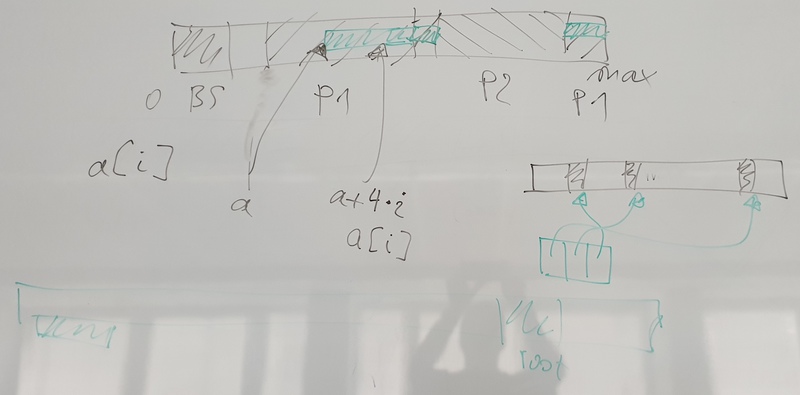 max
0 BS P1 P2 P1
a[i]
a a+4·i
a[i]
..
rust